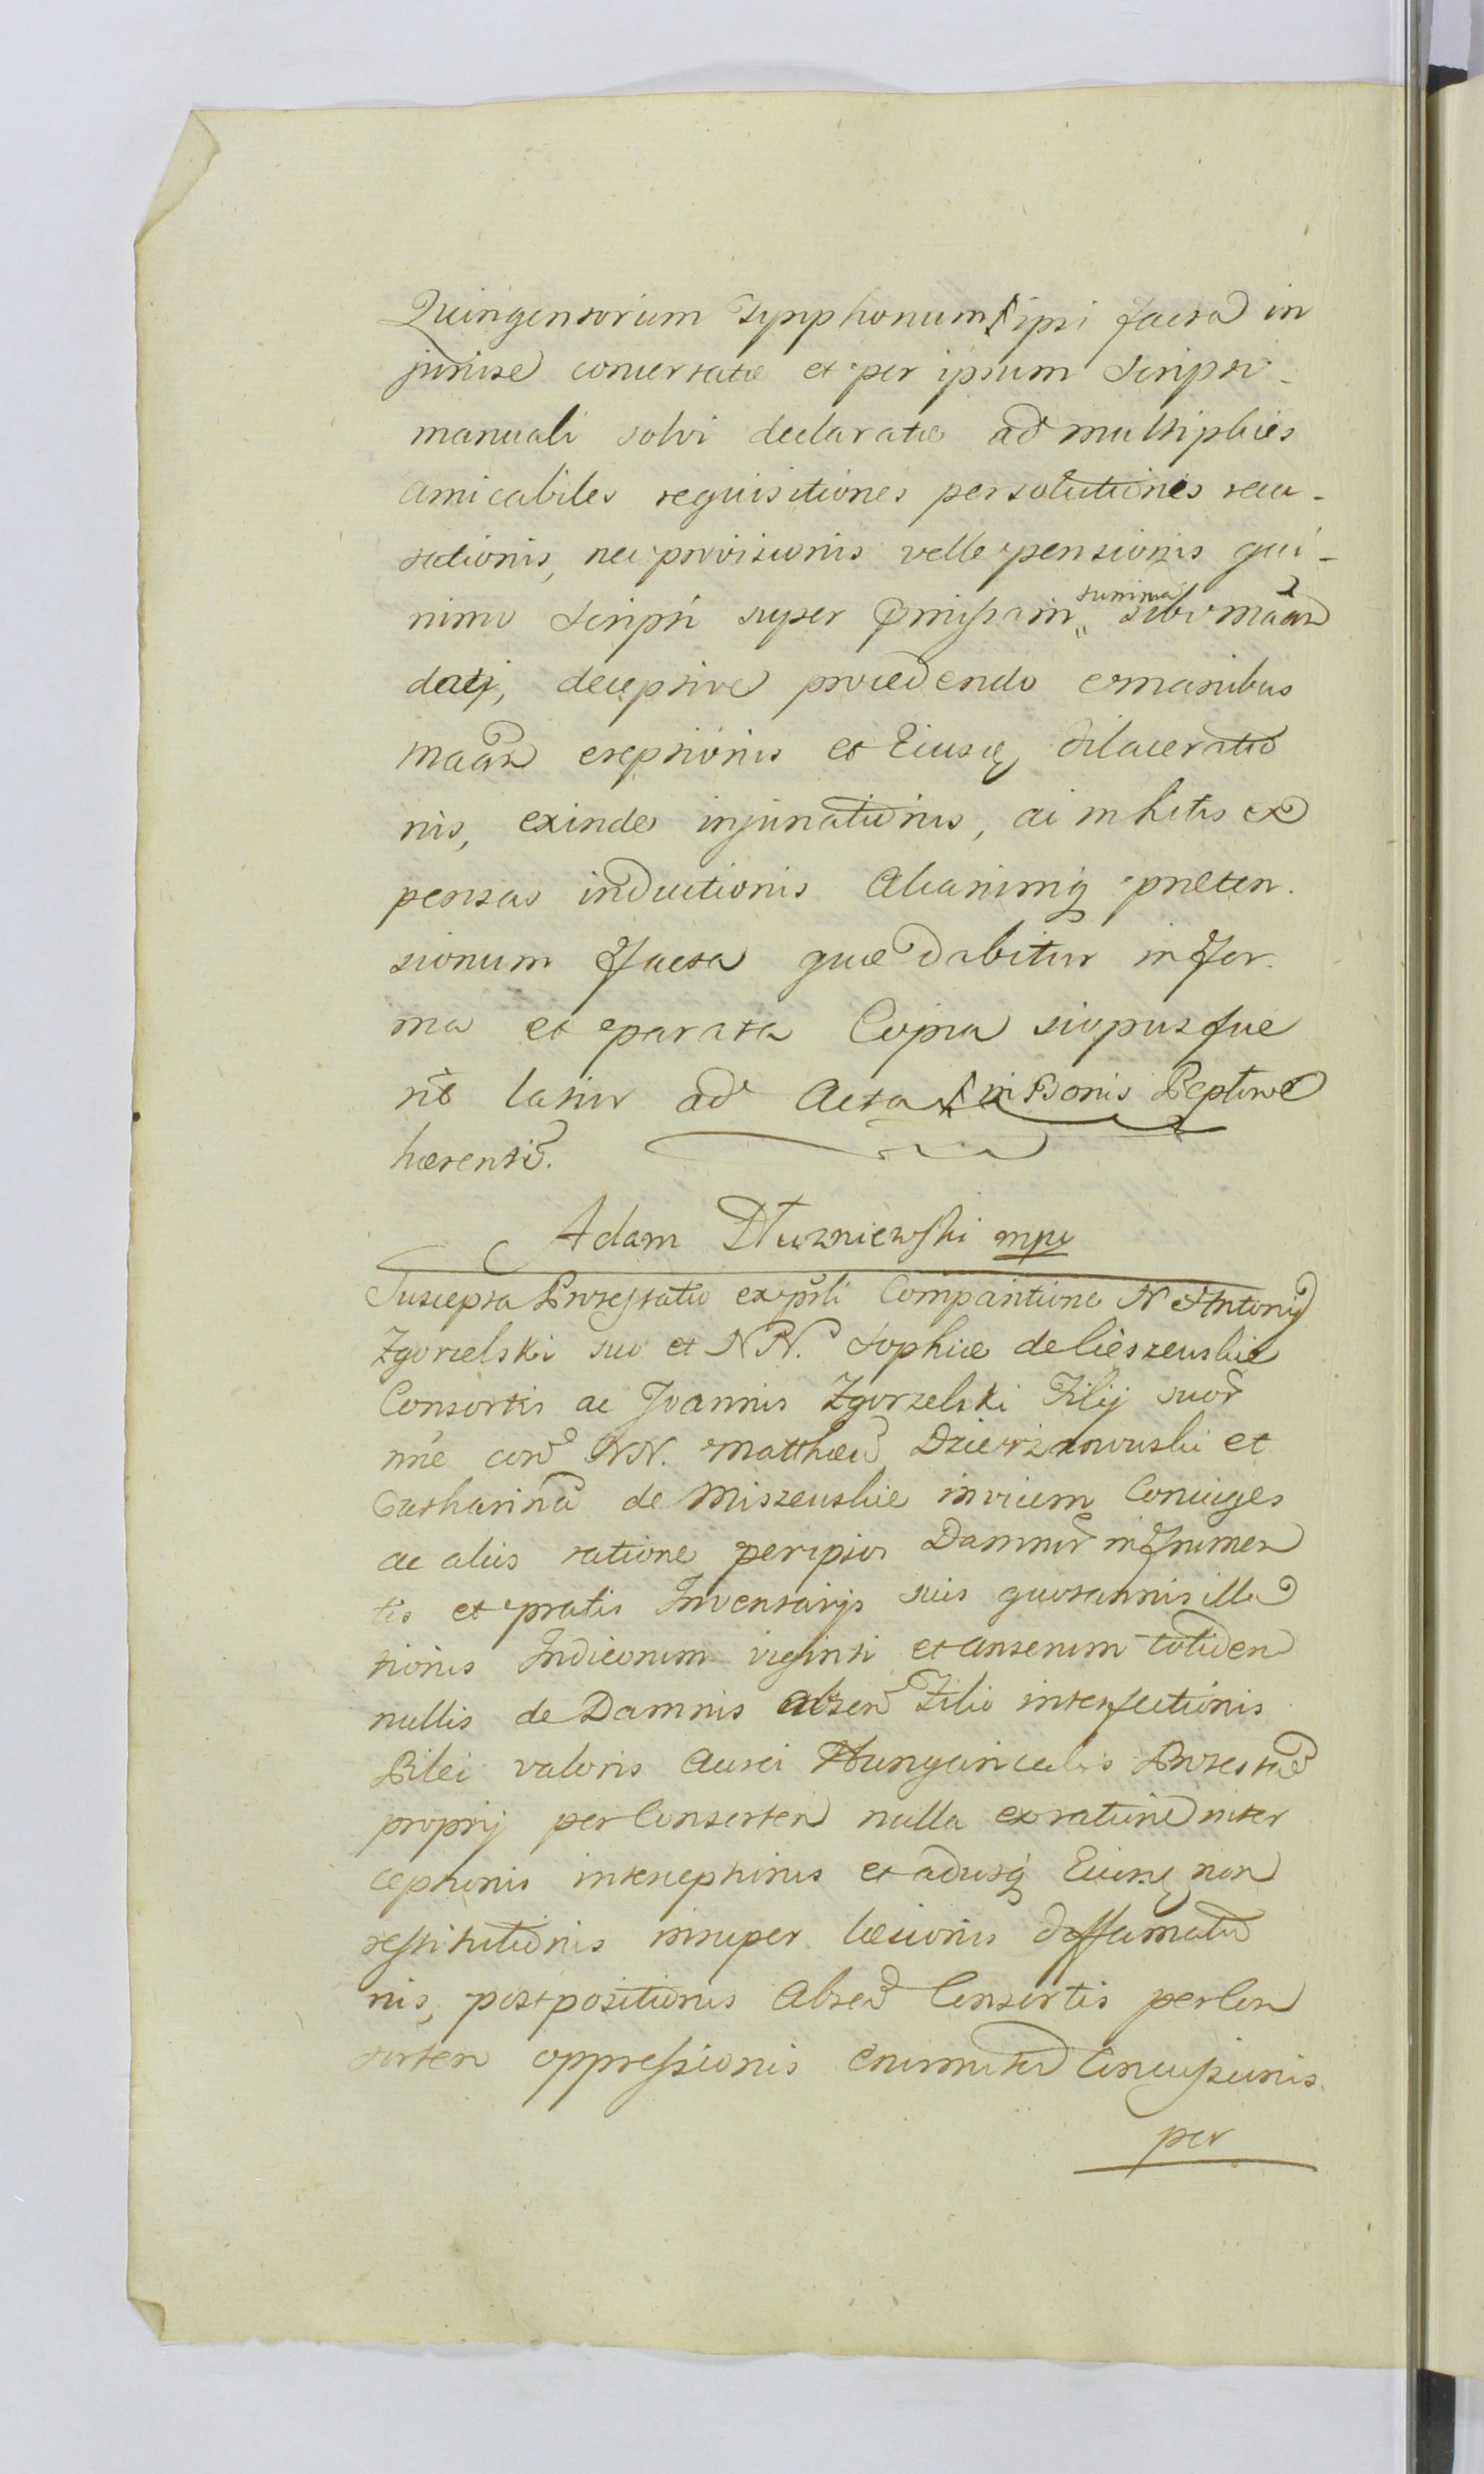 Quingentorum Tynphonum ipsi facta in
juriae conversatae et per ipsum Script-
manuali solvi declaratae ad multiplices
amicabiles requisitiones persolutionis recu-
sationis, nec provisionis velle pensionis qui-
nimo Scripti super pmissam summa sibi maan
datj, deceptive procedendo e manibus
maan ereptionis et Eiusq dilaceratio
nis, exinde injuriationis, ac in litis ex
pensas inductionis Aliarumq preten.
sionum facta quae dabitur in for.
ma et parata Copia si opus fue
rit latius ad Acta in Bonis
haerenti.
Adam Dłuzniewski mpp
Suscepta Protestatio ex psli Comparitione N Antonij
Zgorzelski suo et NN. Sophiae de Cieszewskie
Consortis ac Joannis Zgorzelski Filij suor
nne con NN. Matthaeu Dzierzanowski et
Catharina de Miszewskie invicem Coniuges
ac aliis ratione per ipsos Damnor in frumen
tis et pratis Inventarijs suis quotannis illa
tionis Indicorum viginti et anserum totiden
nullis de Damnis absen Filio interfectionis
Pilei valoris Aurei Hungaricalis Protestan
proprij per Conserten nulla ex ratione inter
ceptionis interceptionis et adusq Eiusq non
restitutionis insuper laesionis diffamatio
nis, postpositionis Absen Consortis per Con
sorten oppressionis Concussionis
per